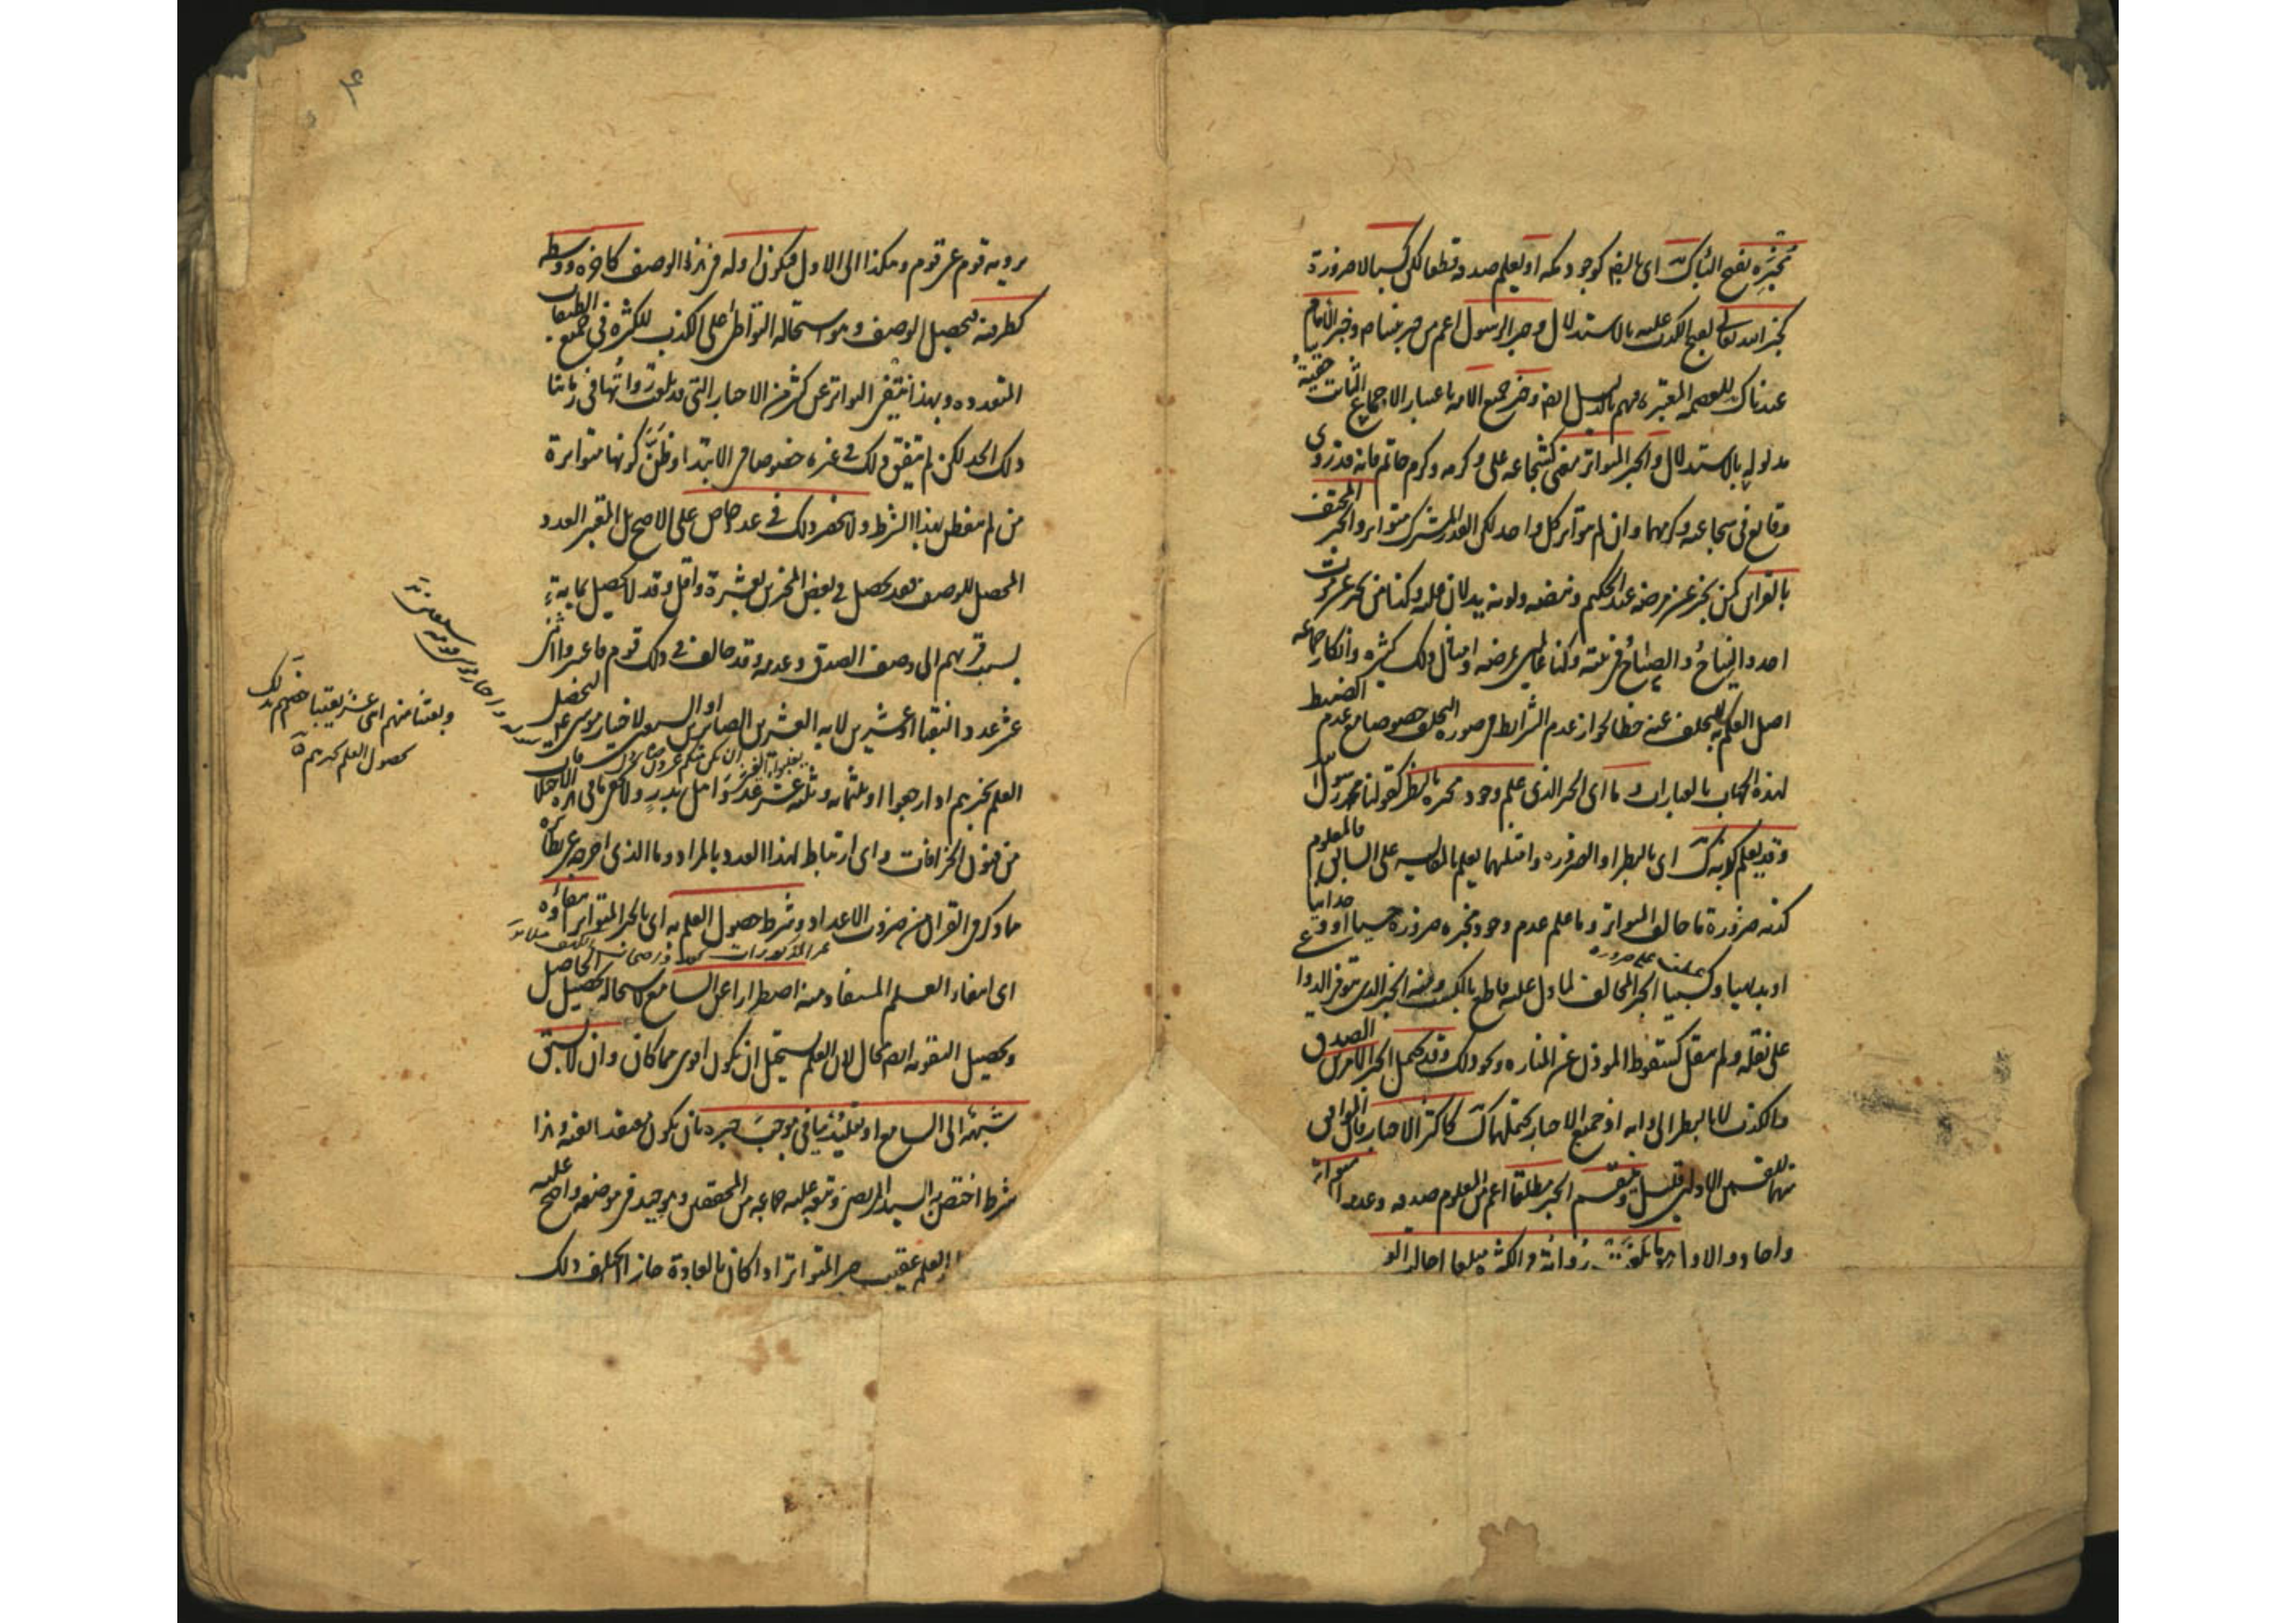 مخبره بفتح الباء ك اى بالضرورة كوجود مكة او يعلم صدقه قطعا لكن كسبا لا ضرورة
كخبر الله تعالى لقبح الكذب عليه بالاستدلال وخبر الرسول اعم من خبر نبينا ص وخبر الامام
عندنا ك للعصمة المعتبرة فيهم بالدليل ايض وخبر جميع الامة باعتبار الاجماع الثابت حقية
مدلوله بالاستدلال والخبر المتواتر معنى كشجاعة على وكرمه وكرم حاتم فانه قد روى
وقايع فى شجاعته وكرمهما وان لم يتواتر كل واحد لكن القدر المشترك متواتر والخبر المحتف
بالقراين كمن يخبر عن مرضه عند الحكيم ونبضه ولونه يدلان عليه وكذا من يخبر عن موت
احد والنياح والصياح فى بيته وكنا عالمين بمرضه وامثال ذلك كثيره وانكار جماعه
اصل العلم به للتخلف عنه خطا لجواز عدم الشرايط فى صوره التخلف خصوصا مع عدم الضبط
لهذه الجهات بالعبارات وما اى الخبر الذى علم وجود مخبره بالنظر كقولنا محمد رسول
وقد يعلم كذبه ك اى بالنظر او الضرورة وامثلتهما يعلم بالمقايسه على السابق فالمعلوم
كذبه ضرورة ما خالف المتواتر وما علم عدم وجود مخبره ضرورة حسيا او وجدانيا
او بديهيا وكسبيا الخبر المخالف لما دل عليه قاطع بالكسب ومنه الخبر الذى يتوفر الدواعى
على نقله ولم ينقل كسقوط الموذن عن المناره ونحو ذلك وقد يحتمل الخبر الامرين الصدق
والكذب لا بالنظر الى ذاته اذ جميع الاخبار يحتملهما ك كاكثر الاخبار فان الموافق
منها للقسمين الاولين قليل وينقسم الخبر مطلقا اعم من المعلوم صدقه وعدمه الى متواتر
واحاد والاول هو ما بلغت رواته فى الكثرة مبلغا احالت العادة
يرويه قوم عن قوم وهكذا الى الاول فيكون اوله فى هذا الوصف كاخره ووسطه
كطرفيه ليحصل الوصف وهو استحالة التواطؤ على الكذب للكثرة فى جميع الطبقات
المتعددة وبهذا ينتفى التواتر عن كثير من الاخبار التى قد بلغت رواتها فى زماننا
ذلك الحد لكن لم يتفق ذلك فى غيره خصوصا فى الابتداء وظن كونها متواترة
من لم يتفطن لهذا الشرط ولا ينحصر ذلك فى عدد خاص على الاصح بل المعتبر العدد
المحصل للوصف فقد يحصل فى بعض المخبرين بعشرة واقل وقد لا يحصل بماية
بسبب قربهم الى وصف الصدق وعدمه وقد خالف فى ذلك قوم فاعتبروا اثنى
عشر عدد النقباء او عشرين لاية العشرين الصابرين او السبعين لاختيار موسى لهم ليحصل
العلم بخبرهم اذا رجعوا او ثلثماية وثلثة عشر عدد اهل بدر ولا يخفى ما فى هذه الاختلافات
من فنون الجزافات واى ارتباط لهذا العدد بالمراد وما الذى اخرجه عن نظائره
مما ذكر فى القران من ضروب الاعداد وشرط حصول العلم به اى بالخبر المتواتر انتفاؤه
اى انتفاء العلم المستفاد منه اضطرارا عن السامع لاستحالة تحصيل الحاصل
وتحصيل التقوية ايضا محال لان العلم يستحيل ان يكون اقوى مما كان وان لا يسبق
شبهة الى السامع او تقليد ينافى موجب خبره بان يكون معتقدا لنفيه وهذا
شرط اختص به السيد المرتضى وتبعه عليه جماعة من المحققين وهو جيد فى موضعه واحتج عليه
العلم عقيب خبر المتواتر اذا كان بالعادة جاز ان يختلف ذلك
وبعثنا منهم اثنى عشر نقيبا خصهم بذلك
لحصول العلم بخبرهم